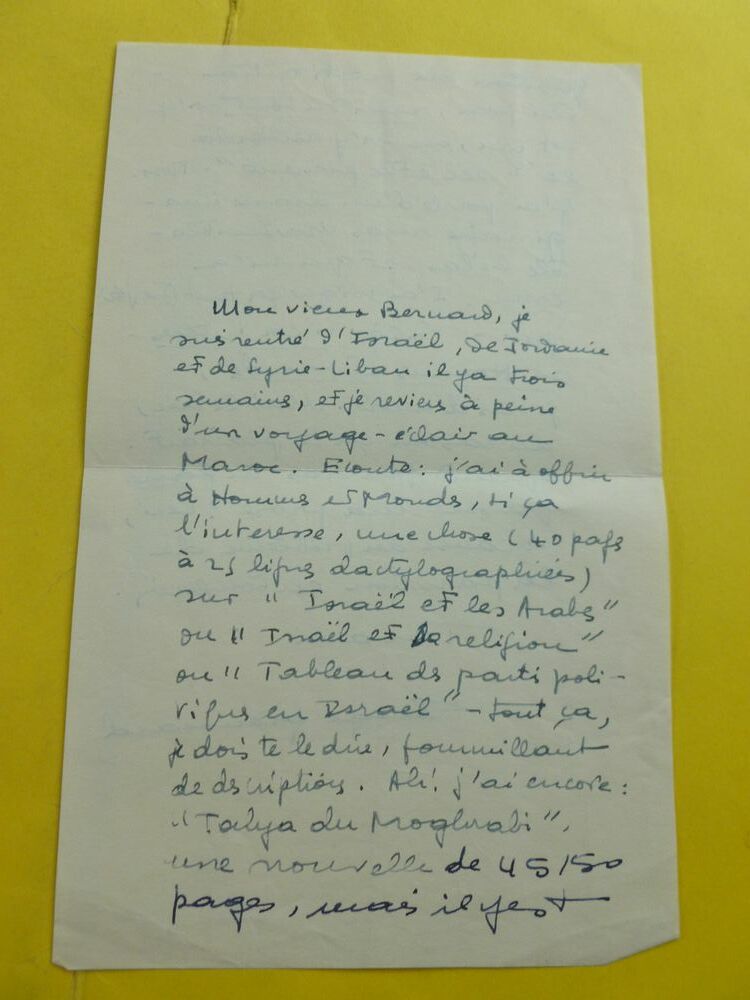 Mon vieux Bernard, je
suis rentré d'Israël, de Jordanie
et de Syrie-Liban il y a trois
semaines, et je reviens à peine
d'un voyage-éclair au
Maroc. Ecoute: j'ai à offrir
à Hommes et Mondes, si ça
l'interesse, une chose (40 pages
à 25 lignes dactylographiées)
sur "Israël et les Arabes"
ou "Israël et la religion"
ou "Tableau des partis poli-
tiques en Israël" - tout ça,
je dois te le dire, fourmillant
de descriptions. Ah! j'ai encore:
"Talya du Moghrabi",
une nouvelle de 45/50
pages, mais il y est